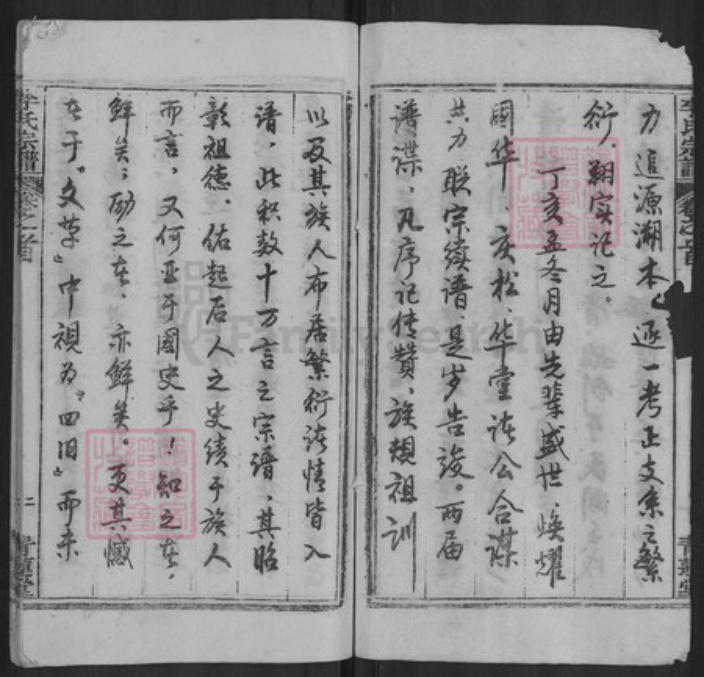 力追源溯本，逐一考正支系之繁
衍，翔实记之。
丁亥孟冬月由先辈盛世、焕耀
国华、亥松、华堂诸公合谋
共力联宗续谱，是岁告竣。两届
谱谍，凡序记传赞、族规祖训
以及其族人布居繁衍诸情皆入
谱，此积数十万言之宗谱，其昭
彰祖德、佑起后人之史绩于族人
而言，又何亚于國史乎！知之者，
鲜矣；励之者，亦鲜矣。更其憾
者于“文革”中视为“四旧”而未
李氏宗譜
卷之首
二
青蓮堂
李氏宗譜
卷之首
青蓮堂
FamilySearch